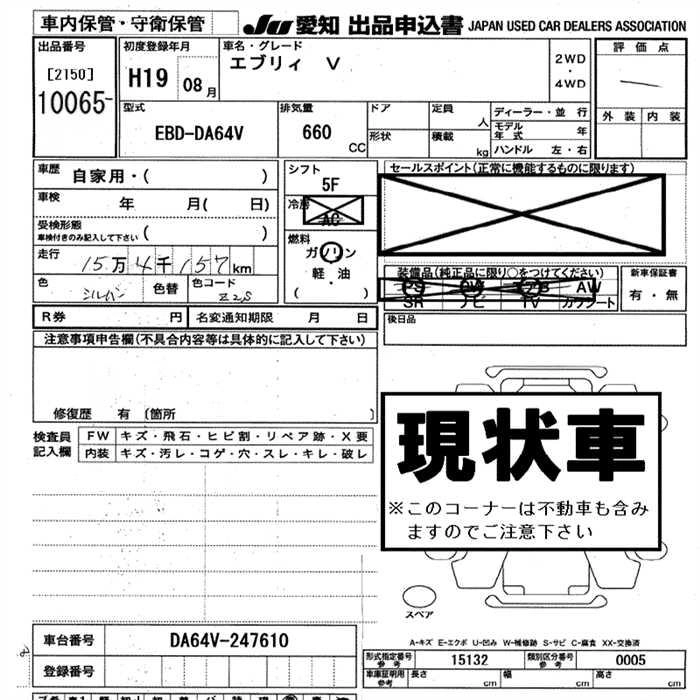 車内保管・守衛保管
JU 愛知 出品申込書 JAPAN USED CAR DEALERS ASSOCIATION
出品番号
[2150]
10065-
初度登録年月
H19 08月
車名・グレード
エブリィ V
2WD
・
4WD
評価点
外装 内装
型式
EBD-DA64V
排気量
660
CC
ドア
形状
定員
人
積載
kg
ディーラー・並行
モデル年式 年
ハンドル 左・右
車歴
自家用・( )
車検 年 月( 日)
受検形態
車検付きのみ記入して下さい ( )
走行
15万4千157km
色
シルバー
色替
色コード
Z2S
シフト
5F
冷房
AC
燃料
ガソリン
軽・油
( )
セールスポイント(正常に機能するものに限ります)
装備品(純正品に限り○をつけてください)
PS PW エアB AW
SR ナビ TV カワシート
新車保証書
有・無
後日品
R券 円
名変通知期限 月 日
注意事項申告欄(不具合内容等は具体的に記入して下さい)
修復歴 有 〔箇所 〕
検査員
記入欄
FW キズ・飛石・ヒビ割・リペア跡・X要
内装 キズ・汚レ・コゲ・穴・スレ・キレ・破レ
現状車
※このコーナーは不動車も含み
ますのでご注意下さい
スペア
A-キズ E-エクボ U-凹み W-補修跡 S-サビ C-腐食 XX-交換済
車台番号
DA64V-247610
登録番号
形式指定番号
参考
15132
類別区分番号
参考
0005
車庫証明用
参考
長さ cm
幅 cm
高さ cm